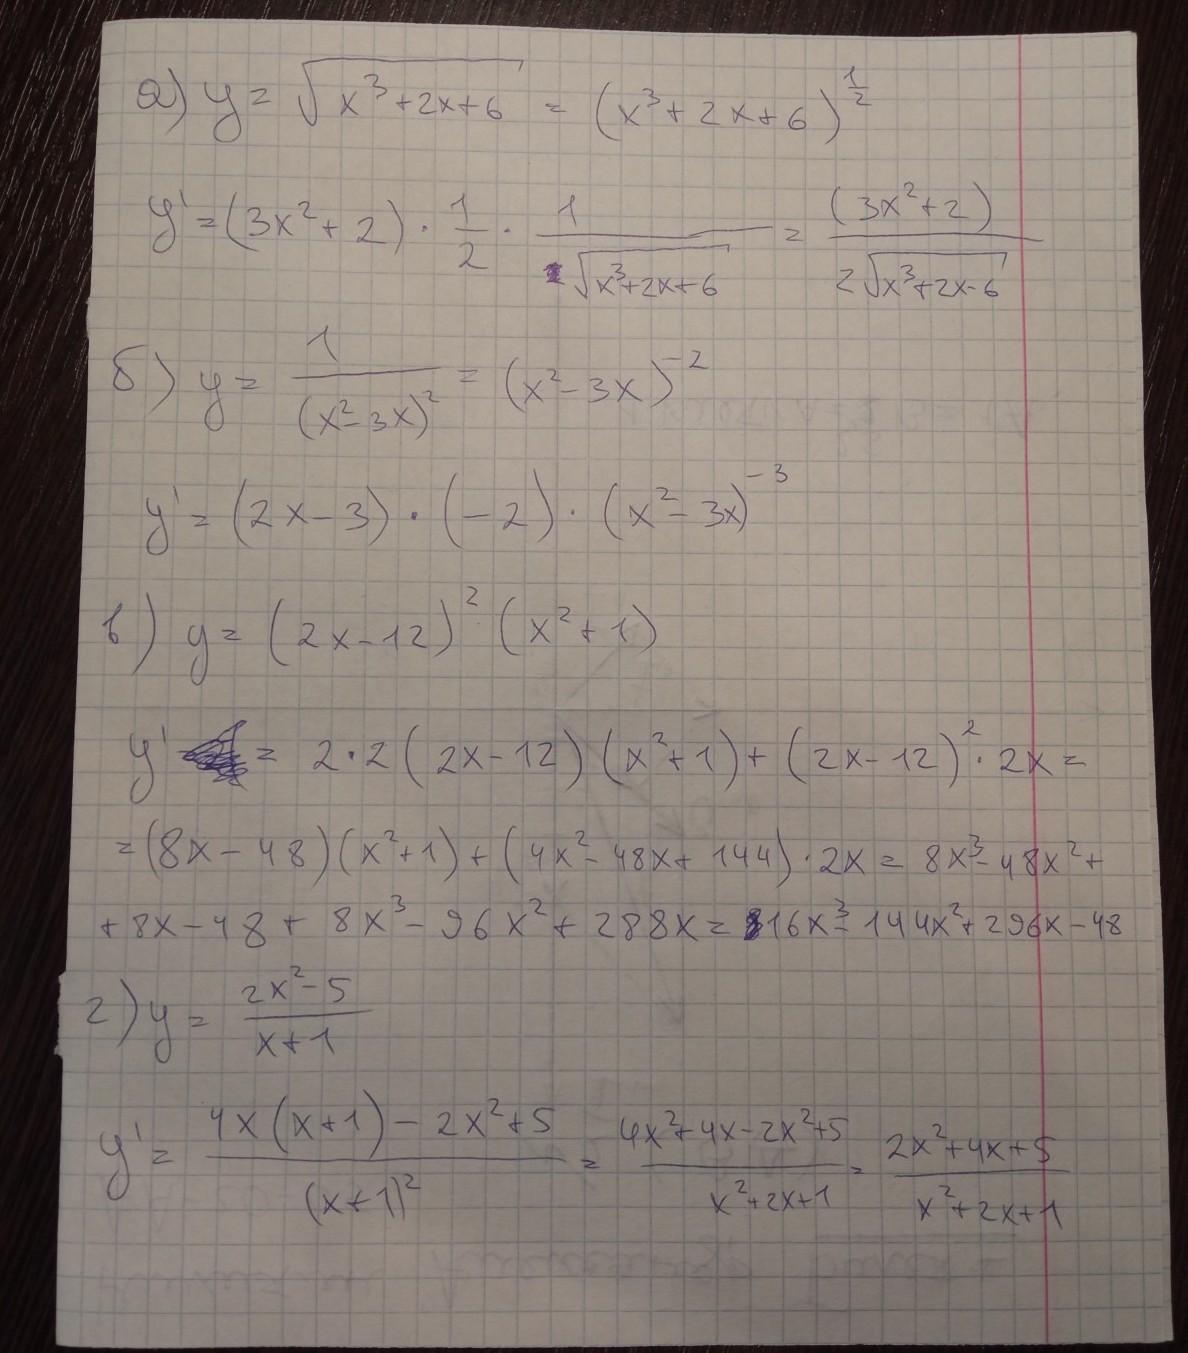 а) y = √(x³+2x+6) = (x³+2x+6)^(1/2)
y' = (3x²+2) · 1/2 · 1/√(x³+2x+6) = (3x²+2)/(2√(x³+2x-6))
б) y = 1/(x²-3x)² = (x²-3x)⁻²
y' = (2x-3) · (-2) · (x²-3x)⁻³
в) y = (2x-12)² (x²+1)
y' = 2·2(2x-12)(x²+1)+(2x-12)²·2x =
=(8x-48)(x²+1)+(4x²-48x+144)·2x = 8x³-48x²+
+8x-48+8x³-96x²+288x = 16x³-144x²+296x-48
г) y = (2x²-5)/(x+1)
y' = (4x(x+1)-2x²+5)/(x+1)² = (4x²+4x-2x²+5)/(x²+2x+1) = (2x²+4x+5)/(x²+2x+1)